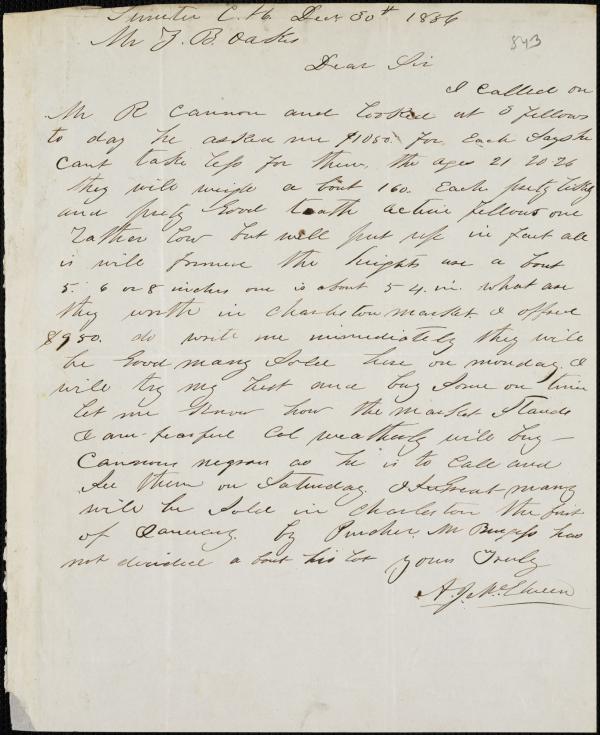 Sumter C. H. Decr 30th 1856
843
Mr Z. B. Oakes
Dear Sir
I called on
Mr R Cannon and looked at 3 fellows
to day he asked me $1050. for Each Says he
cant take less for them. the ages 21 20. 26
they will weigh a bout 160. Each prety likly
and prety Good teath active fellows one
Rather low but well put up in fact all
is well formed the hights are a bout
5. 6 or 8 inches one is about 5 4. in. what are
they worth in Charleston market I offered
$950. do write me immediately they will
be Good many Sold here on monday I
will try my best and buy Some on time
let me know how the market Stands
I am fearful Col weatherly will buy
Cannons negroes as he is to Call and
See them on Saturday. A Great many
will be Sold in Charleston the first
of January. by Mr Burgess has
not decided a bout his lot yours Truly
A. J. McElveen